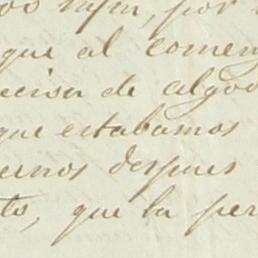 por
que al comen
ecisa de algod
que estabamos
ernos despues
to, que la per